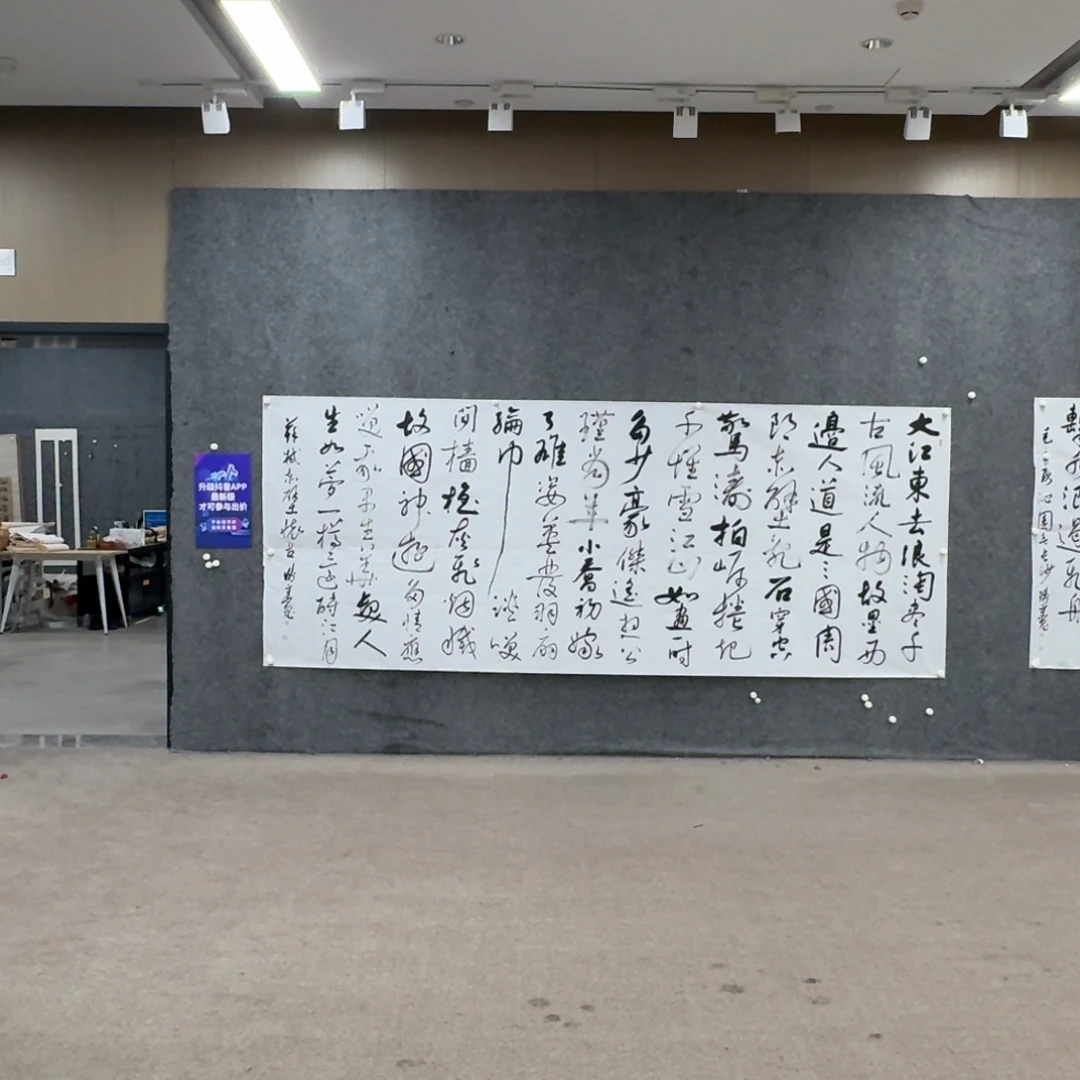 大江東去浪淘盡千
古風流人物故壘西
邊人道是三國周
郎赤壁亂石穿空
驚濤拍岸捲起
千堆雪江山如畫一時
多少豪傑遙想公
瑾當年小喬初嫁
了雄姿英發羽扇
綸巾談笑
間檣櫓灰飛煙滅
故國神遊多情應
笑我早生華髮人
生如夢一樽還酹江月
蘇軾赤壁懷古
升级抖音APP
最新版
才可参与出价